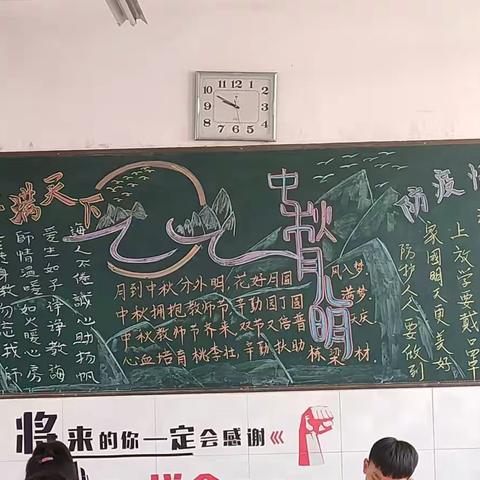 满天下
诲人不倦诚心助扬帆
爱生如子谆谆教诲
师情温暖如火暖心房
中秋月明
月到中秋分外明,花好月圆
中秋拥抱教师节,辛勤园丁圆
中秋教师节齐来,双节又倍普
心血培育桃李壮,辛勤扶助栋梁材.
风入梦.
防疫
上放学要戴口罩
家国明天更美好
防护人人要做到
将来的你一定会感谢